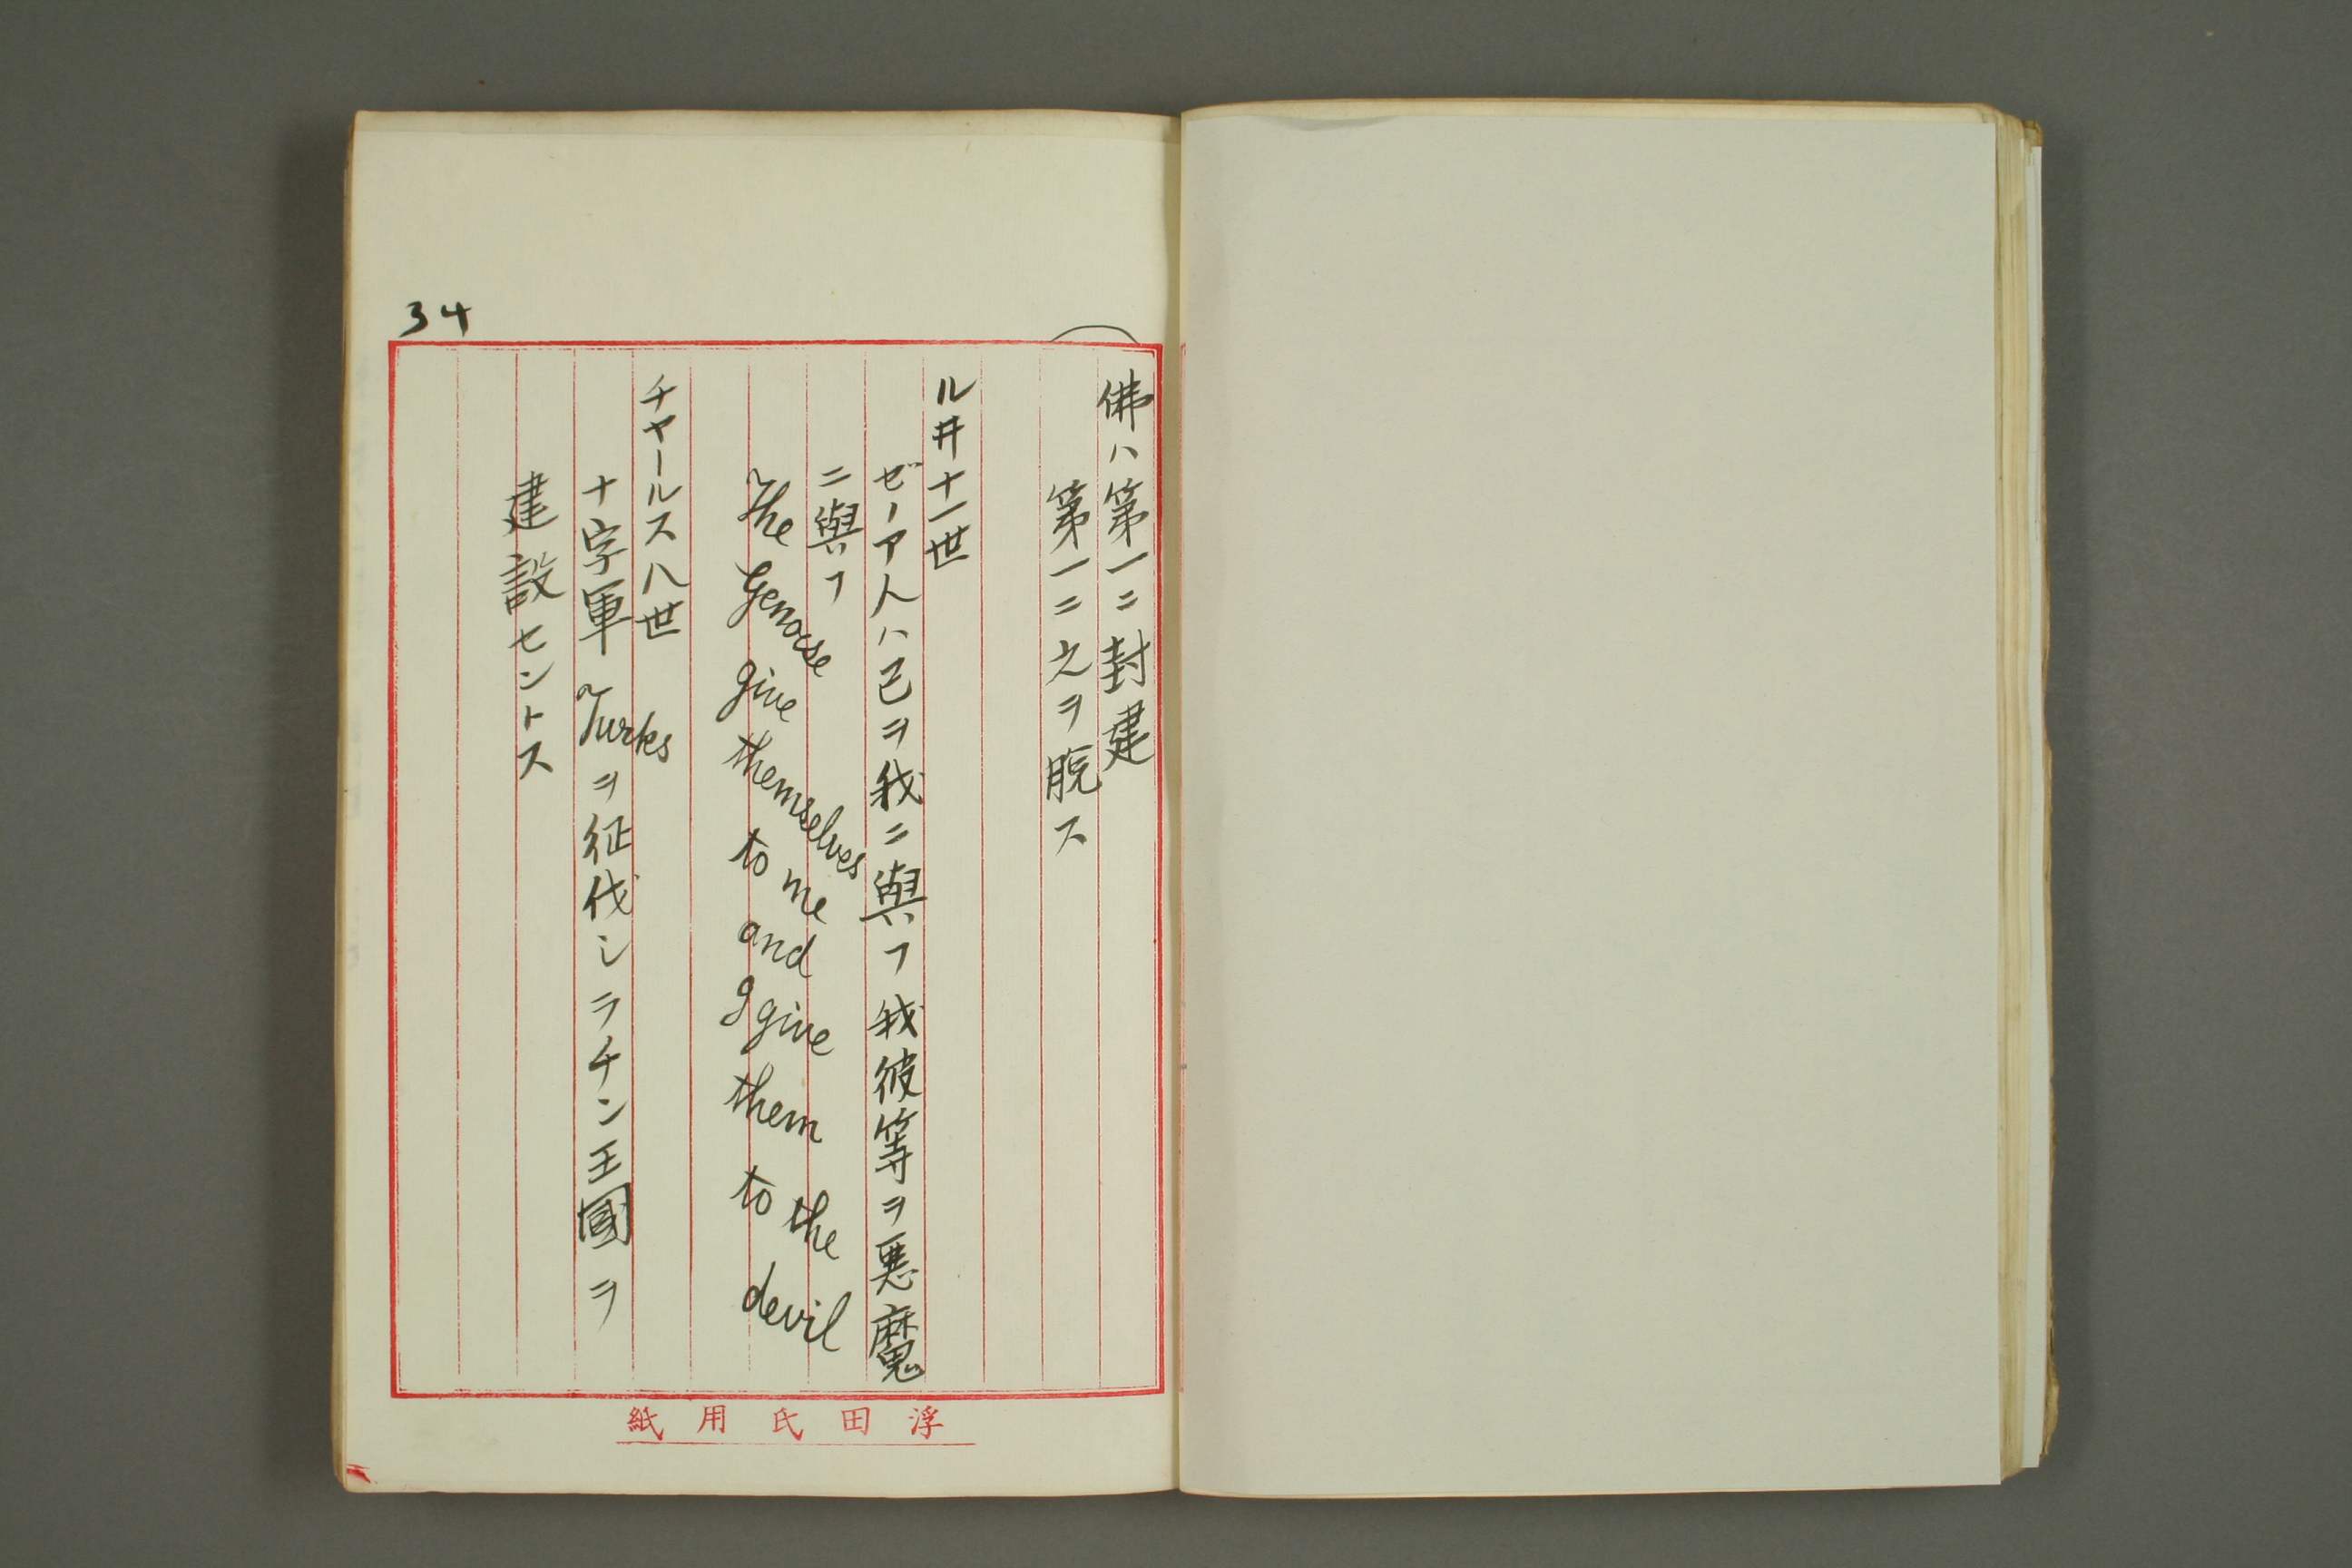 34
佛ハ第一ニ封建
第一ニ之ヲ脫ス
ルヰ十一世
ゼノア人ハ己ヲ我ニ與フ我彼等ヲ悪魔
ニ與フ
The Genoese give themselves to me and I give them to the devil
チヤールス八世
十字軍 Turksヲ征伐シラチン王國ヲ
建設セントス
浮田氏用紙